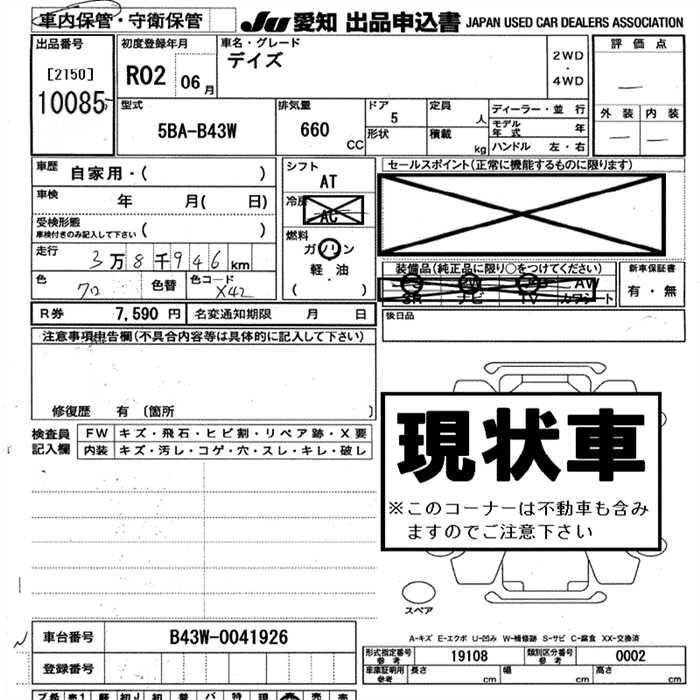 車内保管・守衛保管
JU 愛知 出品申込書 JAPAN USED CAR DEALERS ASSOCIATION
出品番号
[2150]
10085
初度登録年月
R02 06月
車名・グレード
デイズ
2WD
・
4WD
評価点
外装 内装
型式
5BA-B43W
排気量
660
CC
ドア
5
形状
定員
人
積載
kg
ディーラー・並行
モデル年式 年
ハンドル 左・右
車歴
自家用・( )
車検
年 月( 日)
受検形態
車検付きのみ記入して下さい ( )
走行
3万8千946km
色
クロ
色替
色コード
X42
シフト
AT
冷房
AC
燃料
ガソリン
軽・油
( )
セールスポイント(正常に機能するものに限ります)
装備品(純正品に限り○をつけてください)
AW
SR ナビ TV カワシート
新車保証書
有・無
後日品
R券 7,590円
名変通知期限 月 日
注意事項申告欄(不具合内容等は具体的に記入して下さい)
修復歴 有 〔箇所 〕
検査員
記入欄
FW キズ・飛石・ヒビ割・リペア跡・X要
内装 キズ・汚レ・コゲ・穴・スレ・キレ・破レ
現状車
※このコーナーは不動車も含み
ますのでご注意下さい
スペア
A-キズ E-エクボ U-凹み W-補修跡 S-サビ C-腐食 XX-交換済
車台番号 B43W-0041926
登録番号
形式指定番号
参考
19108
類別区分番号
参考
0002
車庫証明用
参考
長さ cm
幅 cm
高さ cm